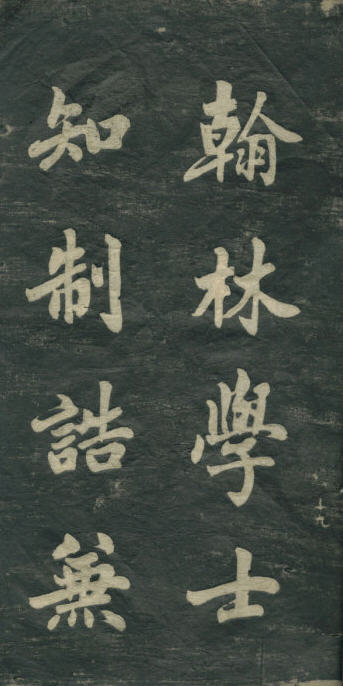 翰林學士
知制誥兼
十九